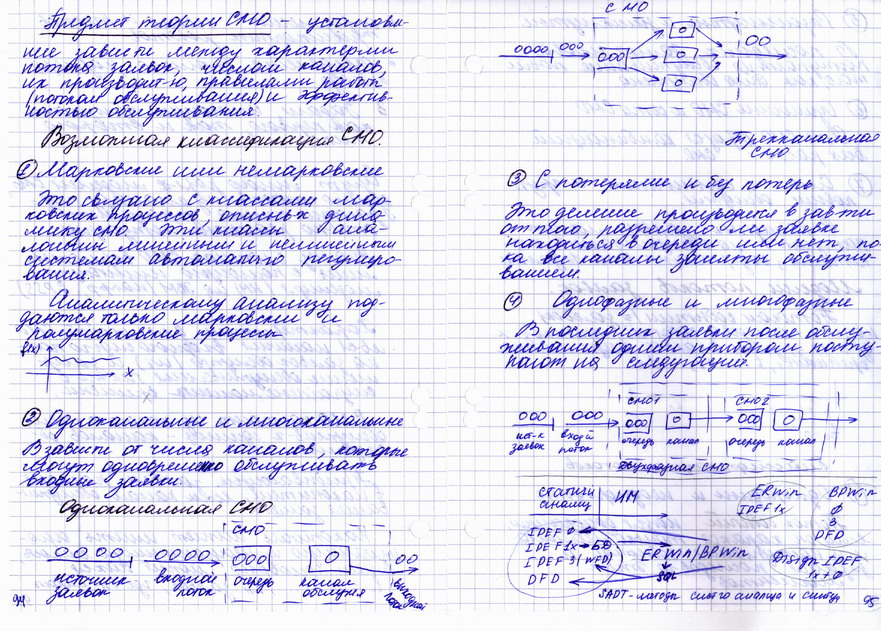 Предмет теории СМО – установле-
ние зависти между характерми
потока заявок, числом каналов,
их производит-ю, правилами работы
(потоком обслуживания) и эффектив-
ностью обслуживания.
Возможная классификация СМО.
① Марковские или немарковские
Это связано с классами мар-
ковских процессов, описных дина
мику СМО. Эти классы ана-
логичны линейным и нелинейным
системам автоматичго регулиро-
вания.
Аналитическому анализу под-
даются только марковские и
полумарковские процессы
f(x)
x
② Одноканальные и многоканальные
В зависти от числа каналов, которые
могут одновременно обслуживать
входные заявки.
Одноканальная СМО
СМО
источник заявок
входной поток
очередь
канал обслужия
выходной поток
94
СМО
Трехканальная
СМО
③ С потерями и без потерь
Это деление производится в зав-ти
от того, разрешено ли заявке
находиться в очереди или нет, по-
ка все каналы заняты обслужи-
ванием.
④ Однофазные и многофазные
В последних заявки после обслу-
живания одним прибором посту-
пают на следующий.
СМО1 СМО2
ист-к заявок
входй поток
очередь канал очередь канал
двухфазная СМО
ИМ
ERWin
IDEF1x
BPWin
0
3
DFD
IDEF 0
IDEF 1x → БД
IDEF 3 (WFD)
DFD
ERWin/BPWin
SQL
Disign IDEF
1x + 0
SADT-методы сист-го анализа и синтеза
95